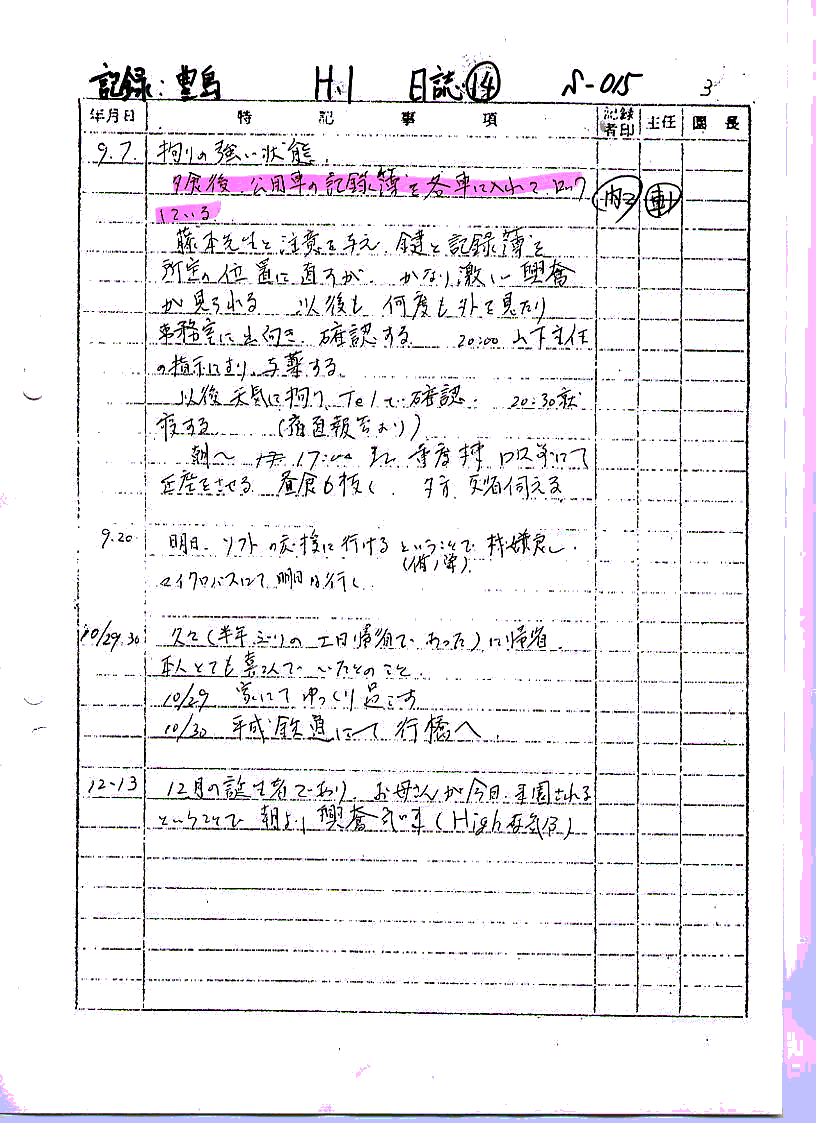 記録：豊島 H.1 日誌 ⑭ S-015 3
年月日 特記事項 記録者印 主任 園長
9.7. 拘りの強い状態.
夕食後、公用車の記録簿を各車に入れて、ロック
している
藤本先生と注意を与え、鍵と記録簿を
所定の位置に直すが、かなり激しい興奮
が見られる 以後も何度も外を見たり
事務室に出向き、確認する 20:00 山下主任
の指示により、与薬する.
以後天気に拘り Telで確認. 20:30就
寝する (宿直報告より)
朝〜 17:00まで 重度棟 にて
をさせる 昼食も抜く. 夕方、
9.20 明日、ソフトの応援に行けるということで機嫌良し.
マイクロバスにて、明日は行く
10/29.30 久々(半年ぶりの土日帰省であった)に帰省.
本人とても喜んでいたとのこと.
10/29 家にてゆっくり過ごす
10/30 平成鉄道にて行橋へ.
12-13 12月の誕生者であり、お母さんが今日、来園される
ということで朝より興奮気味(Highな気分)